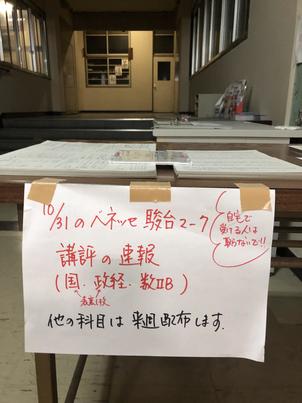 10/31のベネッセ駿台マーク
講評の速報
(国.政経.数ⅡB)
他の科目は来週配布します.
自宅で
受ける人は
取らないで!!